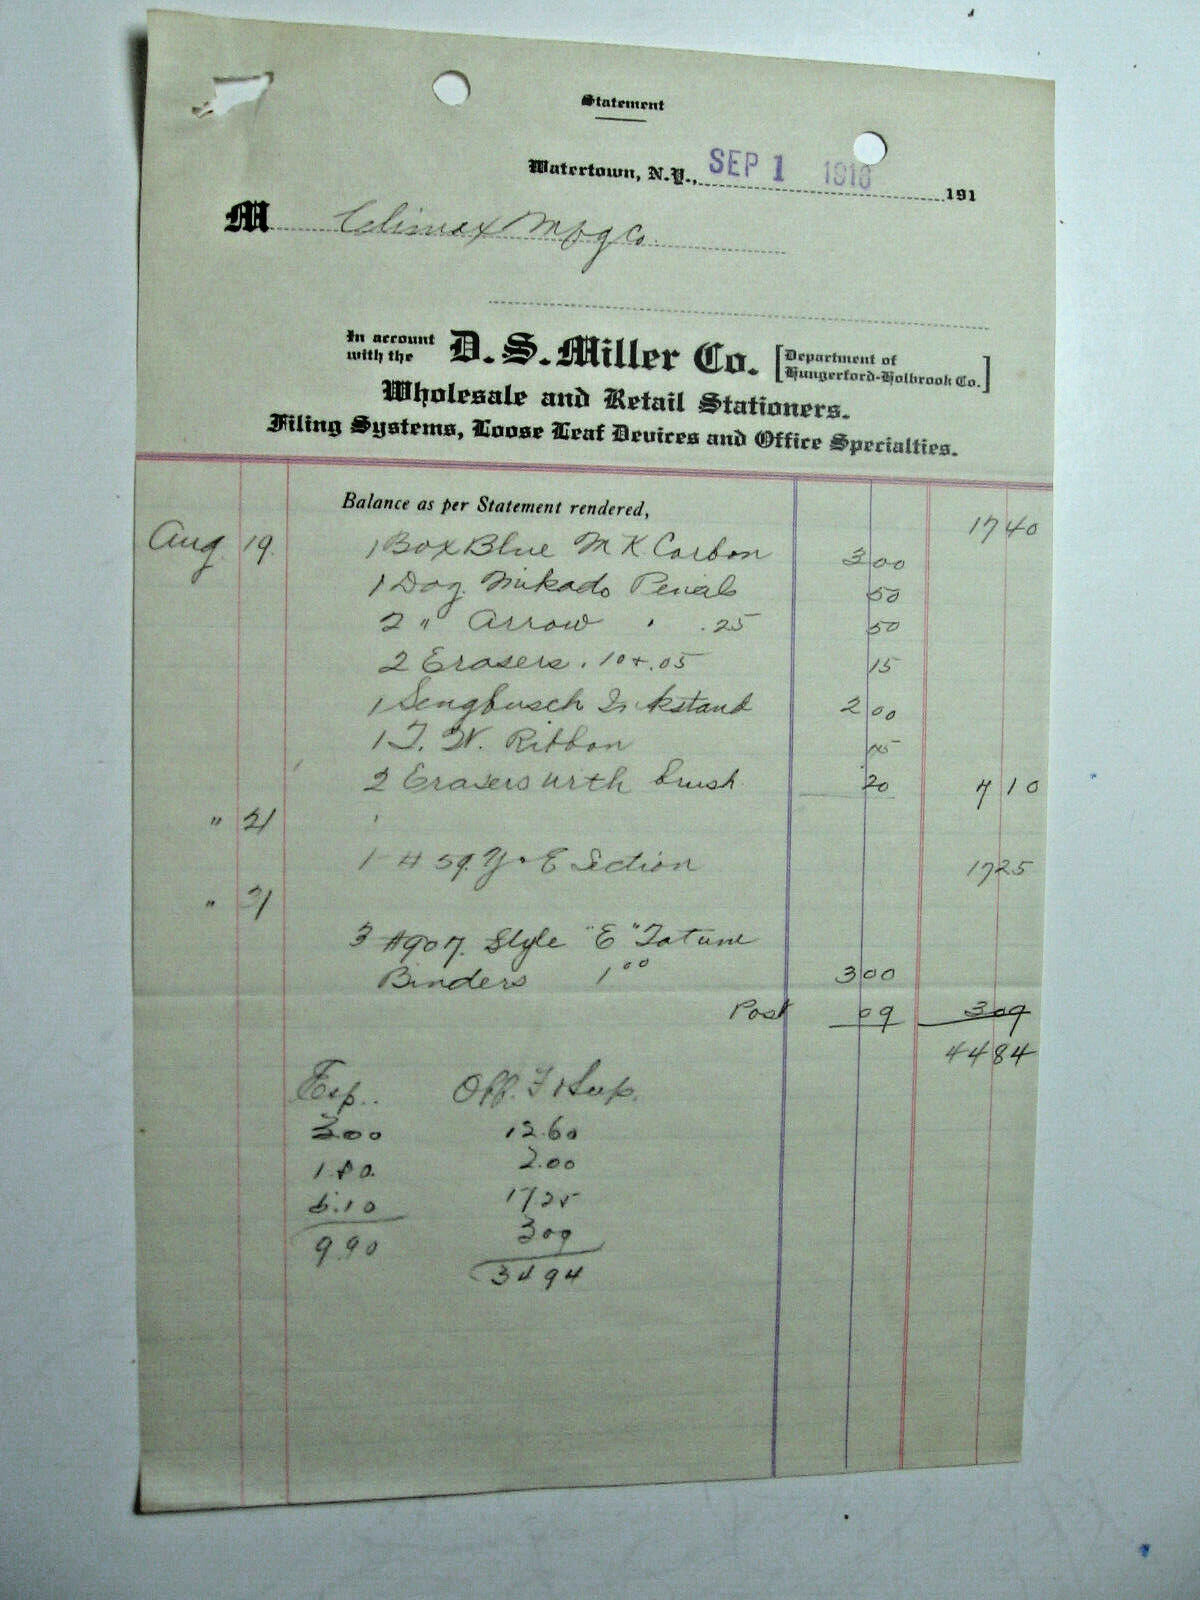 Statement
Watertown, N.Y., SEP 1 1916 191
M Climax Mfg Co.
In account with the D. S. Miller Co. [Department of Hungerford-Holbrook Co.]
Wholesale and Retail Stationers.
Filing Systems, Loose Leaf Devices and Office Specialties.
Balance as per Statement rendered, 17 40
Aug. 19. 1 Box Blue M K Carbon 3 00
1 Doz. Mikado Pencils 50
2 " Arrow " .25 50
2 Erasers .10 + .05 15
1 Sengbusch Inkstand 2 00
1 T. W. Ribbon 75
2 Erasers with brush 20 7 10
" 21
1 - 4 59. Y & E Section 17 25
" 31
3 #907. Style "E" Tatum
Binders 1 00 3 00
Post 09 3 09
44 84
Exp. Off. F & Sup.
3.00 12.60
1.80 2.00
5.10 17 25
9.90 3 09
34 94